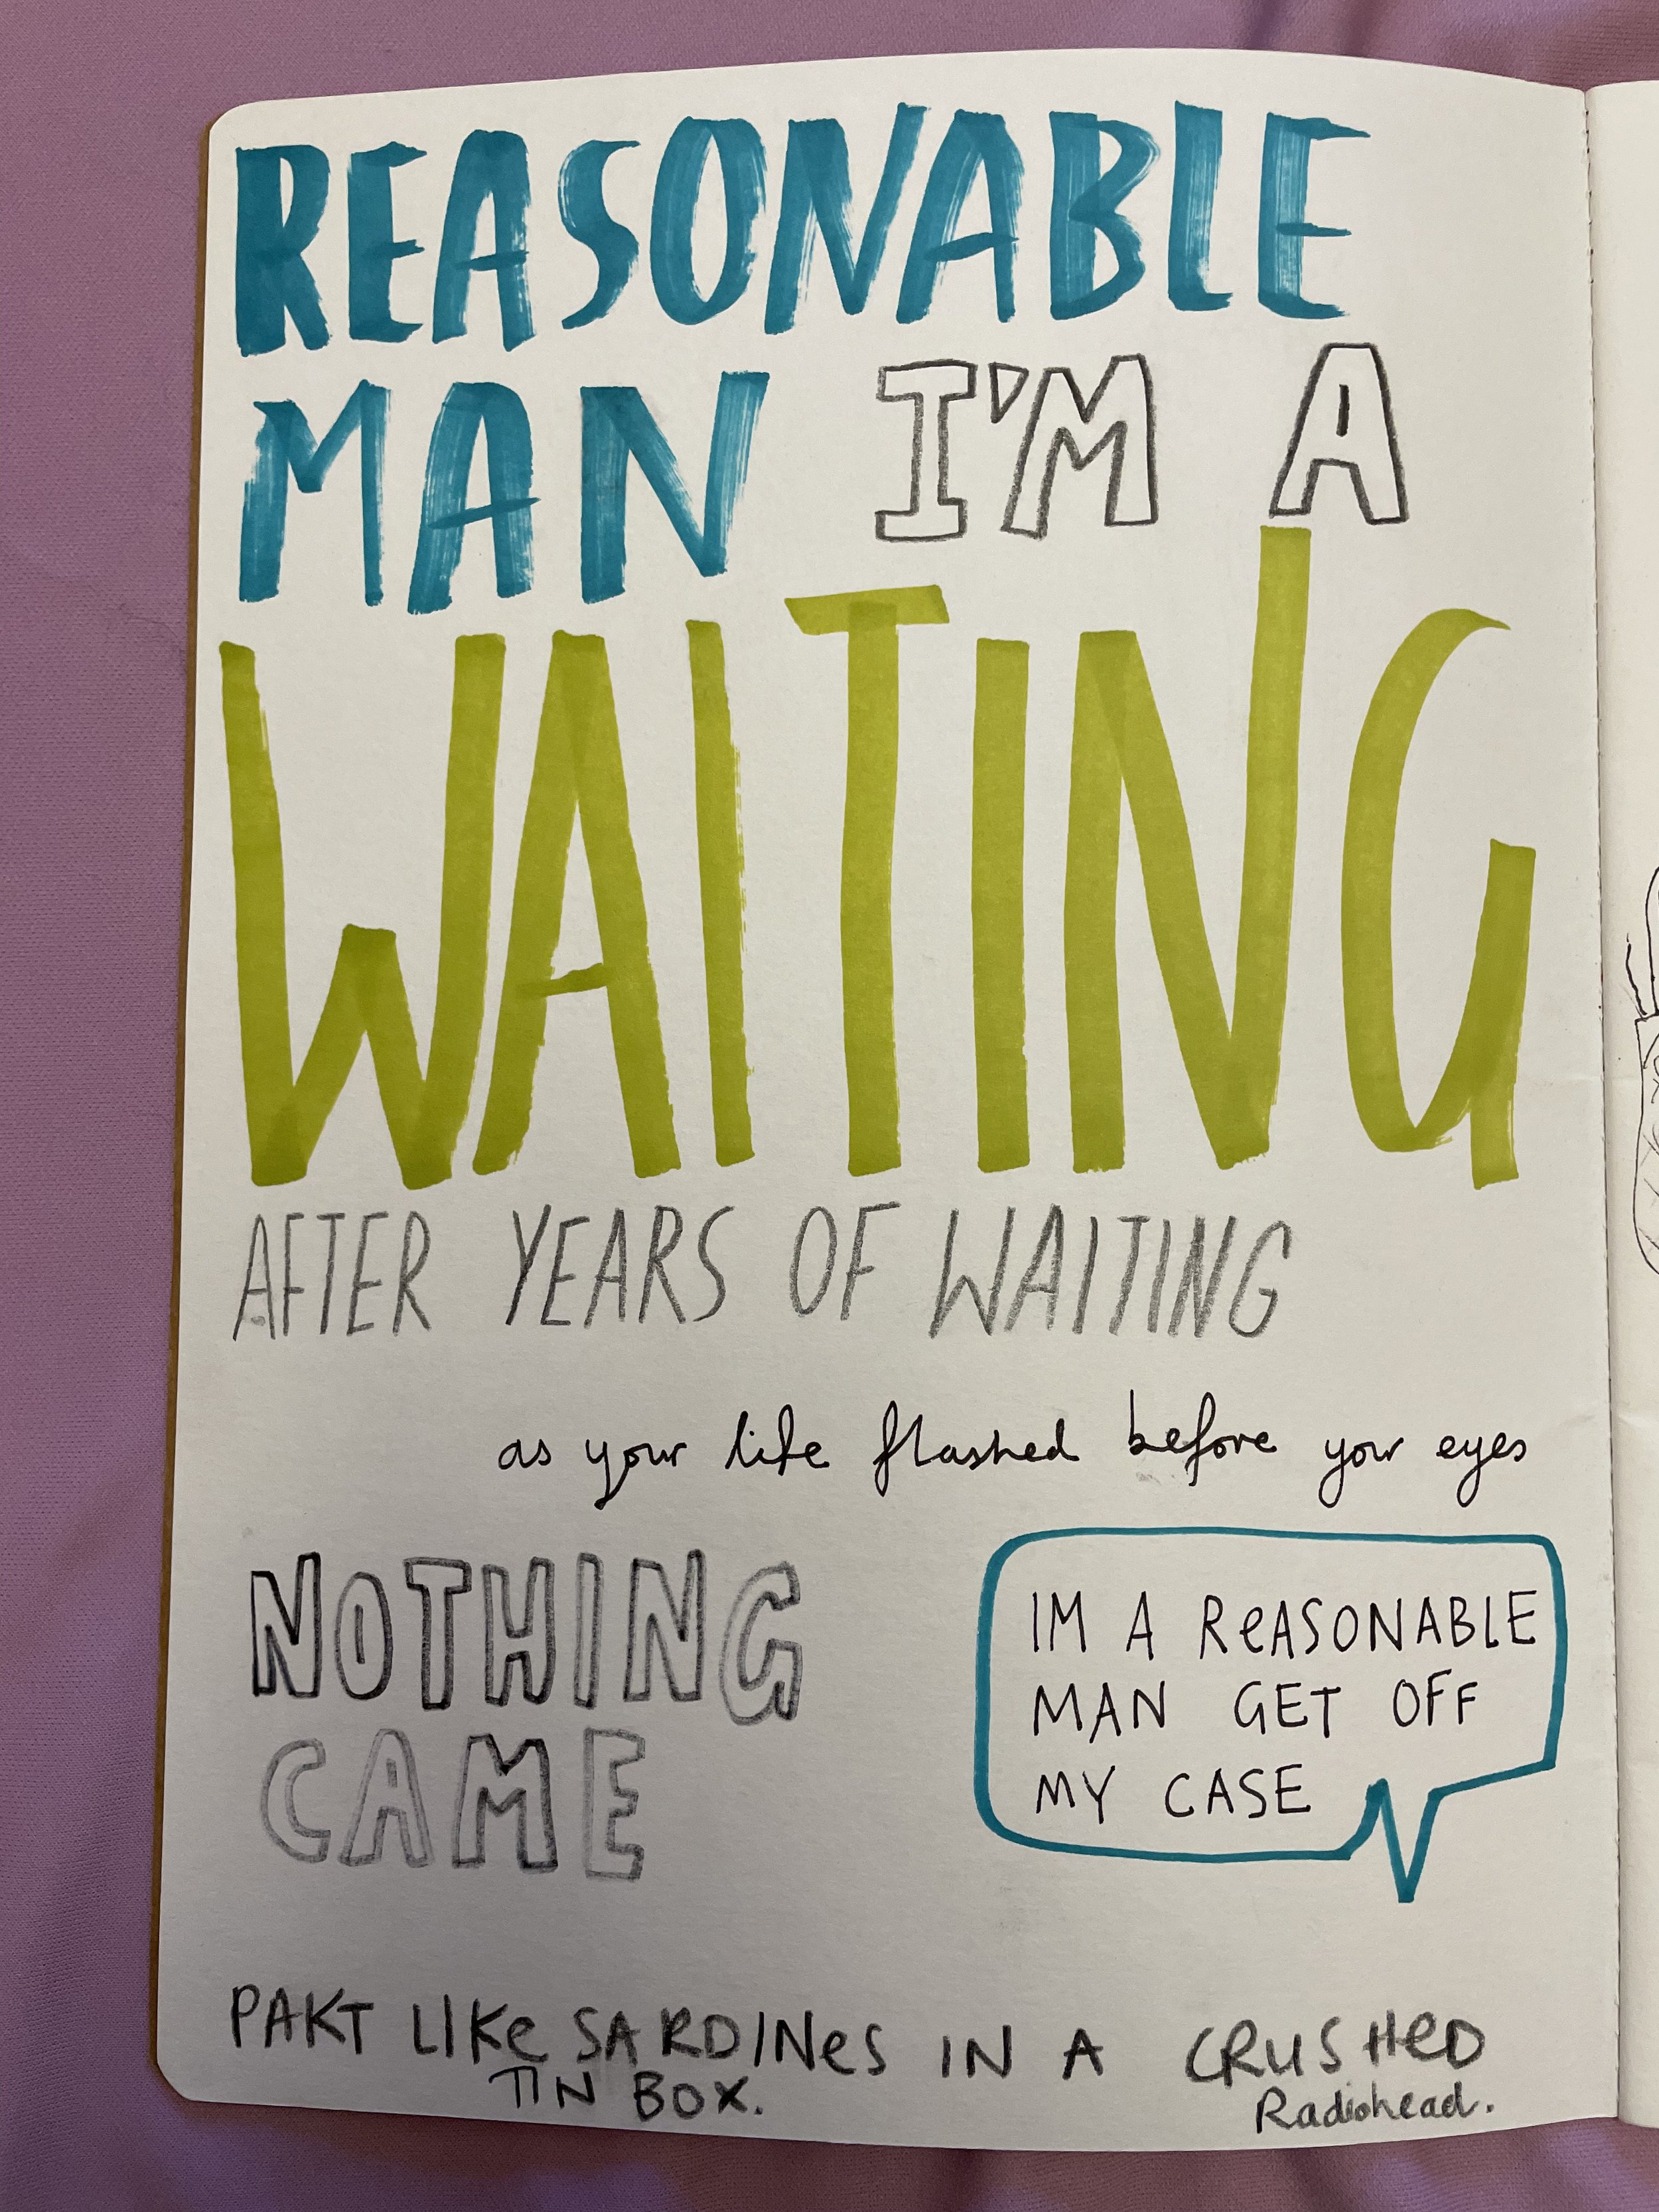 REASONABLE
MAN I'M A
WAITING
AFTER YEARS OF WAITING
as your life flashed before your eyes
NOTHING
CAME
IM A ReASONABLE
MAN GET OFF
MY CASE
PAKT LIKe SARDINeS IN A CRUSHeD
TIN BOX.
Radiohead.